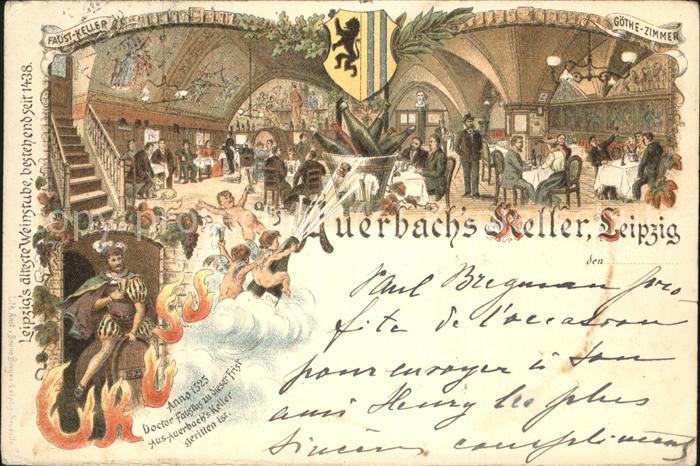 FAUST-KELLER
GÖTHE-ZIMMER
Leipzig's älteste Weinstube, bestehend seit 1438.
Auerbach's Keller, Leipzig
den
GRUSS
1525
Anno 1525
Doctor Faustus zu dieser Frist
Aus Auerbach's Keller
geritten ist.
Paul Bregman pro
fite de l'occasion
pour envoyer à son
ami Henry les plus
sincères compliments